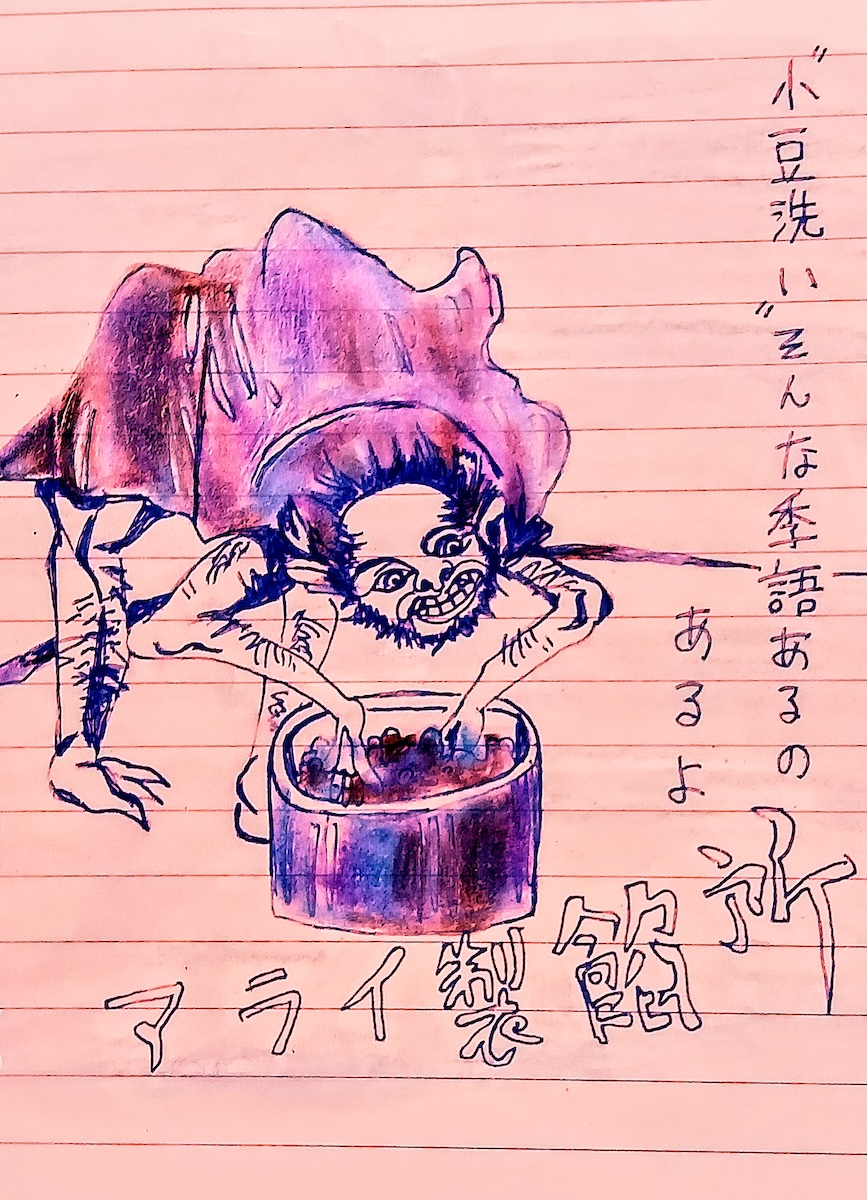 〝小豆洗い〟そんな季語あるの
あるよ
マライ製餡所